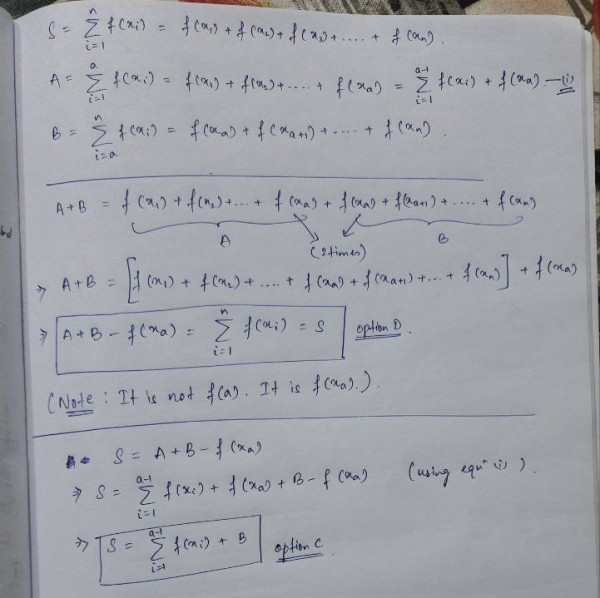 S = n∑i=1 f(xi) = f(x1) + f(x2) + f(x3) + ..... + f(xn).
A = a∑i=1 f(xi) = f(x1) + f(x2) + .... + f(xa) = a-1∑i=1 f(xi) + f(xa). —(i)
B = n∑i=a f(xi) = f(xa) + f(xa+1) + ..... + f(xn).
A+B = f(x1) + f(x2) + ... + f(xa) + f(xa) + f(xa+1) + ..... + f(xn)
A (2 times) B
⇒ A+B = [f(x1) + f(x2) + .... + f(xa) + f(xa+1) + ... + f(xn)] + f(xa)
⇒ A+B - f(xa) = n∑i=1 f(xi) = S option D.
(Note : It is not f(a). It is f(xa).).
S = A+B - f(xa)
⇒ S = a-1∑i=1 f(xi) + f(xa) + B - f(xa) (using eqn (i)).
⇒ S = a-1∑i=1 f(xi) + B option C